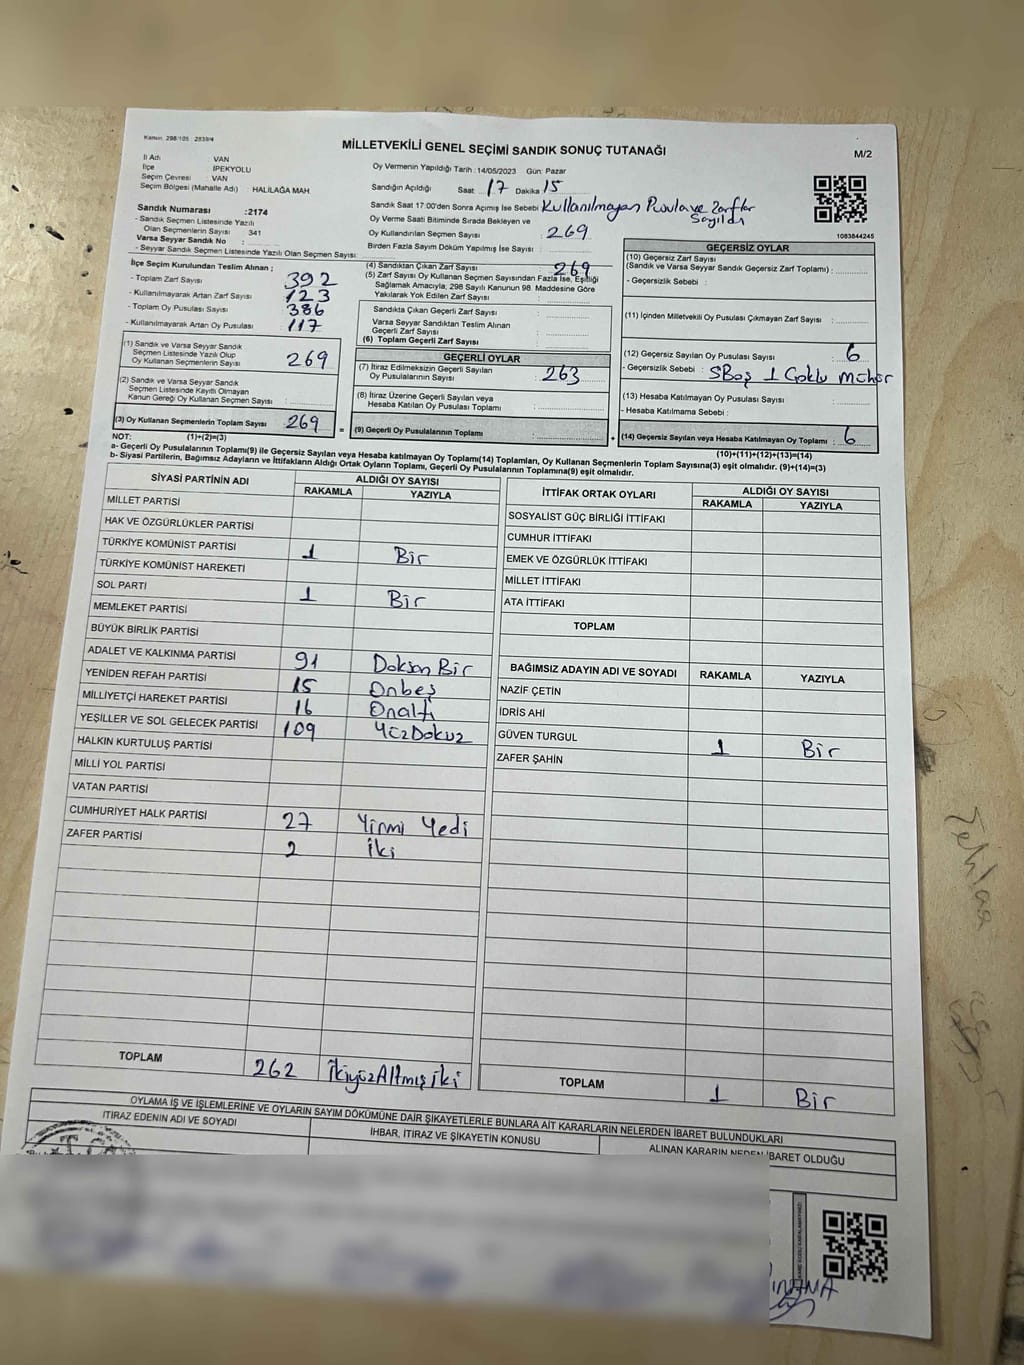 Kanun: 298/105 : 2839/4
MİLLETVEKİLİ GENEL SEÇİMİ SANDIK SONUÇ TUTANAĞI
M/2
İl Adı VAN
İlçe İPEKYOLU
Seçim Çevresi VAN
Seçim Bölgesi (Mahalle Adı) : HALİLAĞA MAH.
Oy Vermenin Yapıldığı Tarih : 14/05/2023 Gün: Pazar
Sandığın Açıldığı Saat 17 Dakika 15
Sandık Saat 17:00'den Sonra Açılmış İse Sebebi Kullanılmayan Pusula ve Zarflar Sayıldı
Oy Verme Saati Bitiminde Sırada Bekleyen ve
Oy Kullandırılan Seçmen Sayısı : 269
Birden Fazla Sayım Döküm Yapılmış İse Sayısı :
1083844245
Sandık Numarası :2174
- Sandık Seçmen Listesinde Yazılı
Olan Seçmenlerin Sayısı 341
Varsa Seyyar Sandık No :
- Seyyar Sandık Seçmen Listesinde Yazılı Olan Seçmen Sayısı:
İlçe Seçim Kurulundan Teslim Alınan ;
- Toplam Zarf Sayısı 392
- Kullanılmayarak Artan Zarf Sayısı : 123
- Toplam Oy Pusulası Sayısı : 386
- Kullanılmayarak Artan Oy Pusulası : 117
(1) Sandık ve Varsa Seyyar Sandık
Seçmen Listesinde Yazılı Olup
Oy Kullanan Seçmenlerin Sayısı 269
(2) Sandık ve Varsa Seyyar Sandık
Seçmen Listesinde Kayıtlı Olmayan
Kanun Gereği Oy Kullanan Seçmen Sayısı :
(3) Oy Kullanan Seçmenlerin Toplam Sayısı 269
(4) Sandıktan Çıkan Zarf Sayısı : 269
(5) Zarf Sayısı Oy Kullanan Seçmen Sayısından Fazla İse, Eşitliği
Sağlamak Amacıyla, 298 Sayılı Kanunun 98. Maddesine Göre
Yakılarak Yok Edilen Zarf Sayısı :
Sandıkta Çıkan Geçerli Zarf Sayısı :
Varsa Seyyar Sandıktan Teslim Alınan
Geçerli Zarf Sayısı
(6) Toplam Geçerli Zarf Sayısı :
GEÇERLİ OYLAR
(7) İtiraz Edilmeksizin Geçerli Sayılan
Oy Pusulalarının Sayısı : 263
(8) İtiraz Üzerine Geçerli Sayılan veya
Hesaba Katılan Oy Pusulası Toplamı :
= (9) Geçerli Oy Pusulalarının Toplamı :
GEÇERSİZ OYLAR
(10) Geçersiz Zarf Sayısı
(Sandık ve Varsa Seyyar Sandık Geçersiz Zarf Toplamı) :
- Geçersizlik Sebebi :
(11) İçinden Milletvekili Oy Pusulası Çıkmayan Zarf Sayısı :
(12) Geçersiz Sayılan Oy Pusulası Sayısı : 6
- Geçersizlik Sebebi : 5Boş 1 Çoklu Mühür
(13) Hesaba Katılmayan Oy Pusulası Sayısı :
- Hesaba Katılmama Sebebi :
+ (14) Geçersiz Sayılan veya Hesaba Katılmayan Oy Toplamı : 6
NOT: (1)+(2)=(3)
(10)+(11)+(12)+(13)=(14)
a- Geçerli Oy Pusulalarının Toplamı(9) ile Geçersiz Sayılan veya Hesaba Katılmayan Oy Toplamı(14) Toplamları, Oy Kullanan Seçmenlerin Toplam Sayısına(3) eşit olmalıdır. (9)+(14)=(3)
b- Siyasi Partilerin, Bağımsız Adayların ve İttifakların Aldığı Ortak Oyların Toplamı, Geçerli Oy Pusulalarının Toplamına(9) eşit olmalıdır.
SİYASİ PARTİNİN ADI ALDIĞI OY SAYISI
RAKAMLA YAZIYLA
MİLLET PARTİSİ
HAK VE ÖZGÜRLÜKLER PARTİSİ
TÜRKİYE KOMÜNİST PARTİSİ 1 Bir
TÜRKİYE KOMÜNİST HAREKETİ
SOL PARTİ 1 Bir
MEMLEKET PARTİSİ
BÜYÜK BİRLİK PARTİSİ
ADALET VE KALKINMA PARTİSİ 91 Doksan Bir
YENİDEN REFAH PARTİSİ 15 Onbeş
MİLLİYETÇİ HAREKET PARTİSİ 16 Onaltı
YEŞİLLER VE SOL GELECEK PARTİSİ 109 YüzDokuz
HALKIN KURTULUŞ PARTİSİ
MİLLİ YOL PARTİSİ
VATAN PARTİSİ
CUMHURİYET HALK PARTİSİ 27 Yirmi Yedi
ZAFER PARTİSİ 2 İki
TOPLAM 262 İkiyüzAltmışiki
İTTİFAK ORTAK OYLARI ALDIĞI OY SAYISI
RAKAMLA YAZIYLA
SOSYALİST GÜÇ BİRLİĞİ İTTİFAKI
CUMHUR İTTİFAKI
EMEK VE ÖZGÜRLÜK İTTİFAKI
MİLLET İTTİFAKI
ATA İTTİFAKI
TOPLAM
BAĞIMSIZ ADAYIN ADI VE SOYADI RAKAMLA YAZIYLA
NAZİF ÇETİN
İDRİS AHİ
GÜVEN TURGUL 1 Bir
ZAFER ŞAHİN
TOPLAM 1 Bir
OYLAMA İŞ VE İŞLEMLERİNE VE OYLARIN SAYIM DÖKÜMÜNE DAİR ŞİKAYETLERLE BUNLARA AİT KARARLARIN NELERDEN İBARET BULUNDUKLARI
İTİRAZ EDENİN ADI VE SOYADI
İHBAR, İTİRAZ VE ŞİKAYETİN KONUSU
ALINAN KARARIN NEDEN İBARET OLDUĞU